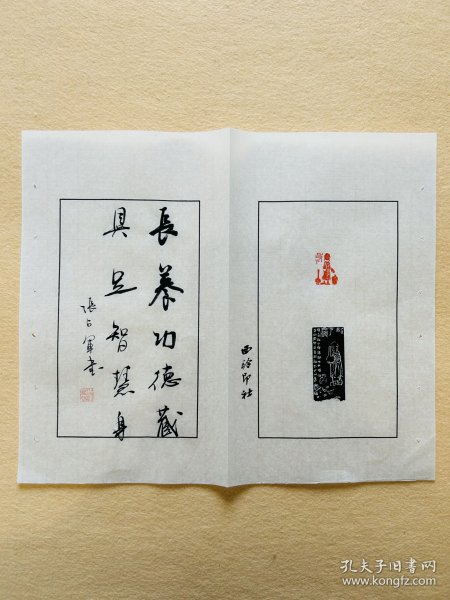 西泠印社
長養功德藏
具足智慧身
張占軍書
孔夫子旧书网
www.kongfz.com